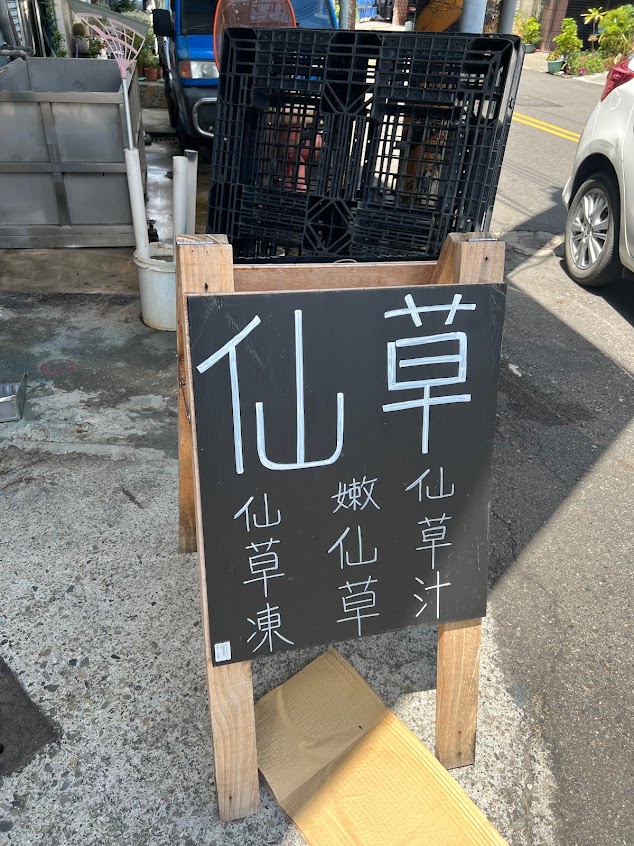 仙草
仙草汁
嫩仙草
仙草凍